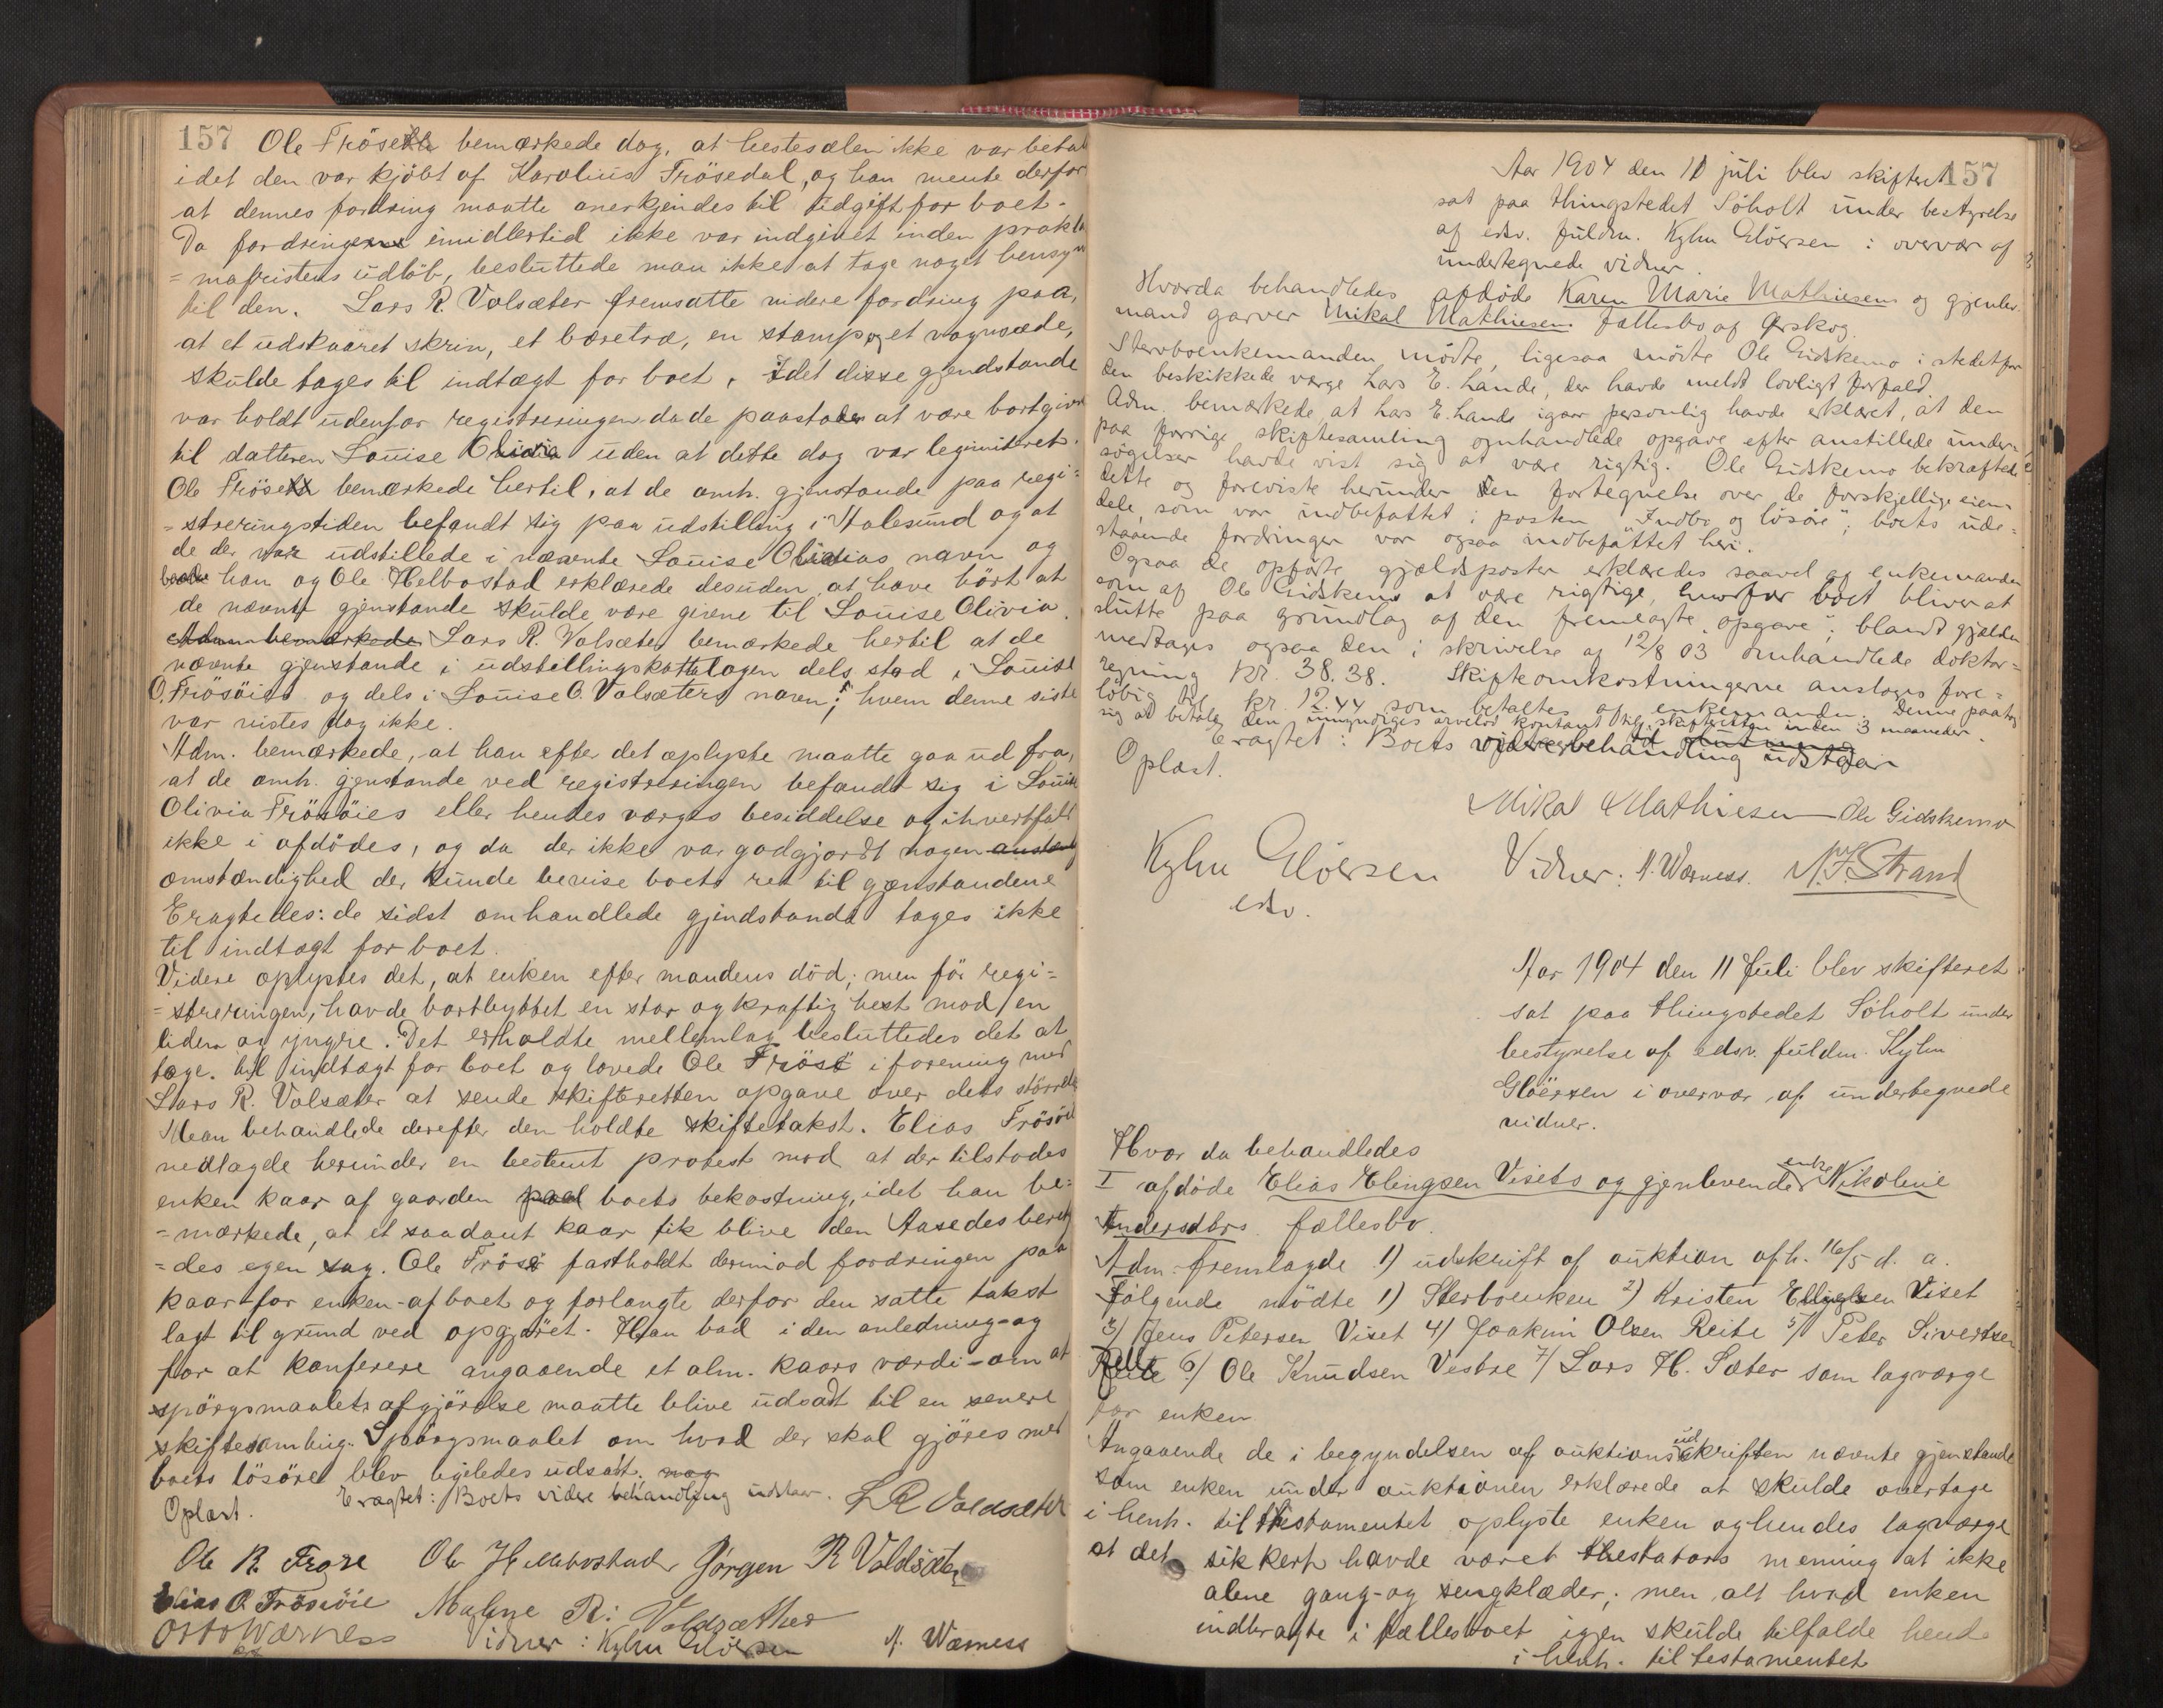 157 Ole Frösedt bemærkede dog, at hestesælen ikke var betal
idet den var kjöbt af Karolius Frösedal, og han mente derfor
at dennes fordring maatte anerkjendes til udgift for boet.
Da fordringerne imidlertid ikke var indgivet inden prokla
=mafristens udlöb, besluttede man ikke at tage noget hensyn
til den. Lars R. Valsæter fremsatte videre fordring paa,
at et udskaaret skrin, et bæretræ, en stamp og et vognsæde,
skulde tages til indtægt for boet. Idet disse gjendstande
var holdt udenfor registreringen da de paastodes at være bortgivne
til datteren Louise Olivia uden at dette dog var legimiteret.
Ole Frösedt bemærkede hertil, at de omh. gjenstande paa regi=
=streringstiden befandt sig paa udstilling i Aalesund og at
de der var udstillede i nævnte Louise Olivias navn og
baade han og Ole Helbostad erklærede desuden at have hört at
de nævnte gjenstande skulde være givne til Louise Olivia.
Adm bemærkede Lars R. Valsæter bemærkede hertil at de
nævnte gjenstande i udstillingskattalogen dels stod i Louise
O. Frösöies og dels i Louise O. Valsæters navn; hvem denne siste
var vistes dog ikke.
Adm. bemærkede, at han efter det oplyste maatte gaa ud fra,
at de omh. gjenstande ved registreringen befandt sig i Louise
Olivia Frösöies eller hendes værges besiddelse og ihvertfald
ikke i afdödes, og da der ikke var godgjordt nogen
omstændighed der kunde bevise boets ret til gjenstandene
Eragtedes: de sidst omhandlede gjendstande tages ikke
til indtægt for boet.
Videre oplystes det, at enken efter mandens död, men för regi=
=streringen, havde bortbyttet en stor og kraftig hest mod en
liden og yngre. Det erholdte mellemlag besluttedes det at
tage til indtægt for boet og lovede Ole Frösö i forening med
Lars R. Valsæter at sende skifteretten opgave over dets störrelse
Man behandlede derefter den holdte skiftetakst. Elias Frösöie
nedlagde herunder en bestemt protest mod at der tilstodes
enken kaar af gaarden paa boets bekostning, idet han be=
=mærkede, at et saadant kaar fik blive den Aasedesberetig
=des egen sag. Ole Frösö fastholdt derimod fordringen paa
kaar for enken af boet og forlangte derfor den satte takst
lagt til grund ved opgjöret. Han bad i den anledning og
for at konferere angaaende et alm. kaars værdi om at
spörgsmaalets afgjörelse maatte blive udsadt til en senere
skiftesamling. Spörgsmaalet om hvad der skal gjöres med
boets lösöre blev ligeledes udsadt.
Eragtet: Boets videre behandling udstaar.
Oplæst. L R Valdsæter
Ole R. Frose Ole Hellebostad Jörgen R Valdsæter
Elias O. Frösöie Malene R: Valdsæther
Otto Wærness Vidner: Kyhn Glöersen A. Wærness
157
Aar 1904 den 11 juli blev skifteret
sat paa thingstedet Söholt under bestyrelse
af edsv. fuldm. Kyhn Glöersen i overvær af
undertegnede vidner.
Hvorda behandledes afdöde Karen Marie Mathiesens og gjenlev.
mand garver Mikal Mathiesens fællesbo af Ørskog.
Stervboenkemanden mödte, ligesaa mödte Ole Gidskemo i stedetfor
den beskikkede værge Lars E. Lande, der havde meldt lovligt forfald.
Adm. bemærkede, at Lars E. Lande igaar personlig havde erklæret, at den
paa forrige skiftesamling omhandlede opgave efter anstillede under=
sögelser havde vist sig at være rigtig. Ole Gidskemo bekræftede
dette og foreviste herunder den fortegnelse over de forskjellige eien=
dele, som var indbefattet i posten "Indbo og lösöre"; boets ude=
staaende fordringer var ogsaa indbefattet heri.
Ogsaa de opförte gjældsposter erklæredes saavel af enkemanden
som af Ole Gidskemo at være rigtige, hvorfor boet bliver at
slutte paa grundlag af den fremlagte opgave; blandt gjælden
medtages ogsaa den i skrivelse af 12/8 03 omhandlede doktor=
regning kr. 38.38. Skifteomkostningerne ansloges fore=
löbig til kr. 12.44 som betaltes af enkemanden. Denne paatog
sig at betale den umyndiges arvelod kontant til skifteretten inden 3 maaneder.
Eragtet: Boets videre behandling udstaar
Oplæst.
Mikal Mathiesen Ole Gidskemo
Kyhn Glöersen Vidner: A. Wærness. N. F. Strand
edsv.
Aar 1904 den 11 Juli blev skifteret
sat paa thingstedet Söholt under
bestyrelse af edsv. fuldm. Kyhn
Glöersen i overvær af undertegnede
vidner.
Hvor da behandledes
I afdöde Elias Elingsen Visets og gjenlevende enke Nikoline
Andersdtrs fællesbo.
Adm. fremlagde 1) udskrift af auktion afh. 16/5 d. a.
Fölgende mödte 1) Sterboenken 2) Kristen Ellingsen Viset
3) Jens Petersen Viset 4) Joakim Olsen Reite 5) Peter Sivertsen
Reite 6) Ole Knudsen Vestre 7) Lars H. Sæter som lagværge
for enken
Angaaende de i begyndelsen af auktionsudskriften nævnte gjenstande
som enken under auktionen erklærede at skulde overtage
i henh. til testamentet oplyste enken og hendes lagværge
at det sikkert havde været testators mening at ikke
alene gang- og sengklæder; men alt hvad enken
indbragte i fællesboet igjen skulde tilfalde hende
i henh. til testamentet